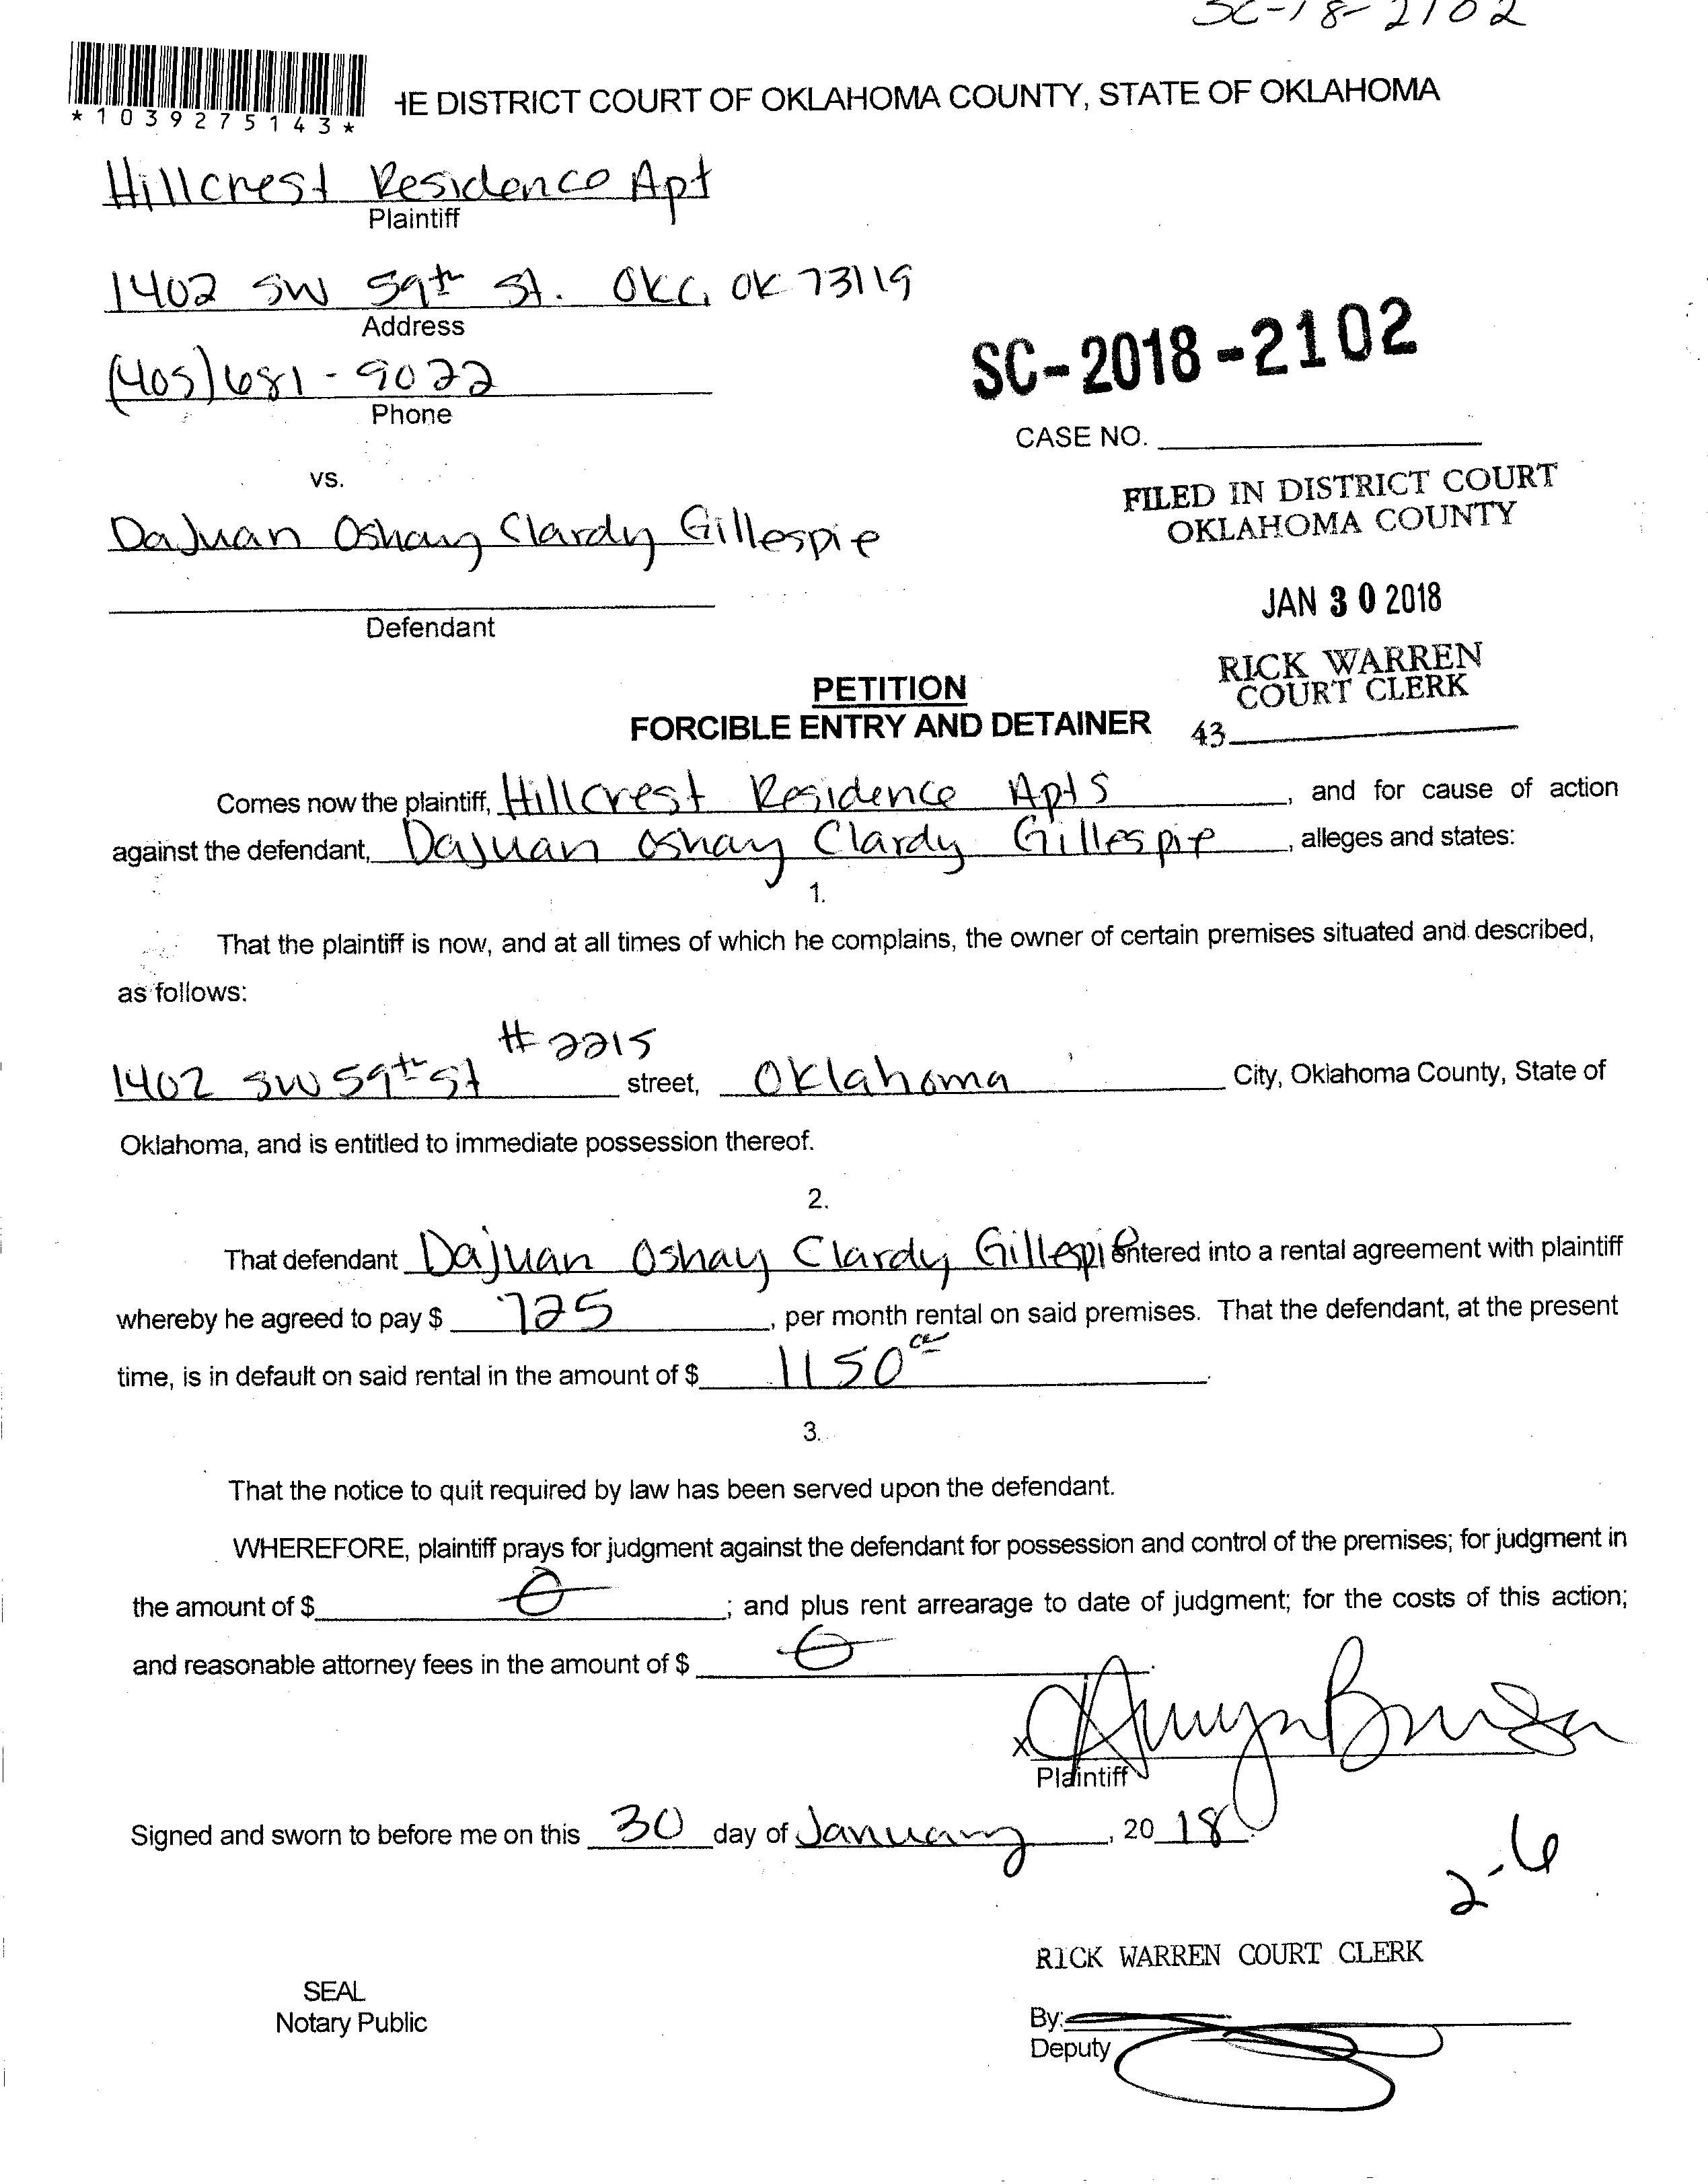 SC-18-2102
*1039275143*
HE DISTRICT COURT OF OKLAHOMA COUNTY, STATE OF OKLAHOMA
Hillcrest Residence Apt
Plaintiff
1402 SW 59th St. OKC, OK 73119
Address
(405)681-9022
Phone
SC-2018-2102
CASE NO.
vs.
FILED IN DISTRICT COURT
OKLAHOMA COUNTY
DaJuan Oshay Clardy Gillespie
JAN 30 2018
Defendant
RICK WARREN
COURT CLERK
43
PETITION
FORCIBLE ENTRY AND DETAINER
Comes now the plaintiff, Hillcrest Residence Apts, and for cause of action
against the defendant, DaJuan Oshay Clardy Gillespie, alleges and states:
1.
That the plaintiff is now, and at all times of which he complains, the owner of certain premises situated and described,
as follows:
#2215
1402 SW 59th St street, Oklahoma City, Oklahoma County, State of
Oklahoma, and is entitled to immediate possession thereof.
2.
That defendant DaJuan Oshay Clardy Gillespie entered into a rental agreement with plaintiff
whereby he agreed to pay $ 725, per month rental on said premises. That the defendant, at the present
time, is in default on said rental in the amount of $ 1150.
3.
That the notice to quit required by law has been served upon the defendant.
WHEREFORE, plaintiff prays for judgment against the defendant for possession and control of the premises; for judgment in
the amount of $ 0; and plus rent arrearage to date of judgment; for the costs of this action;
and reasonable attorney fees in the amount of $ 0.
X
Plaintiff
Signed and sworn to before me on this 30 day of January, 2018.
2-6
RICK WARREN COURT CLERK
SEAL
Notary Public
By:
Deputy